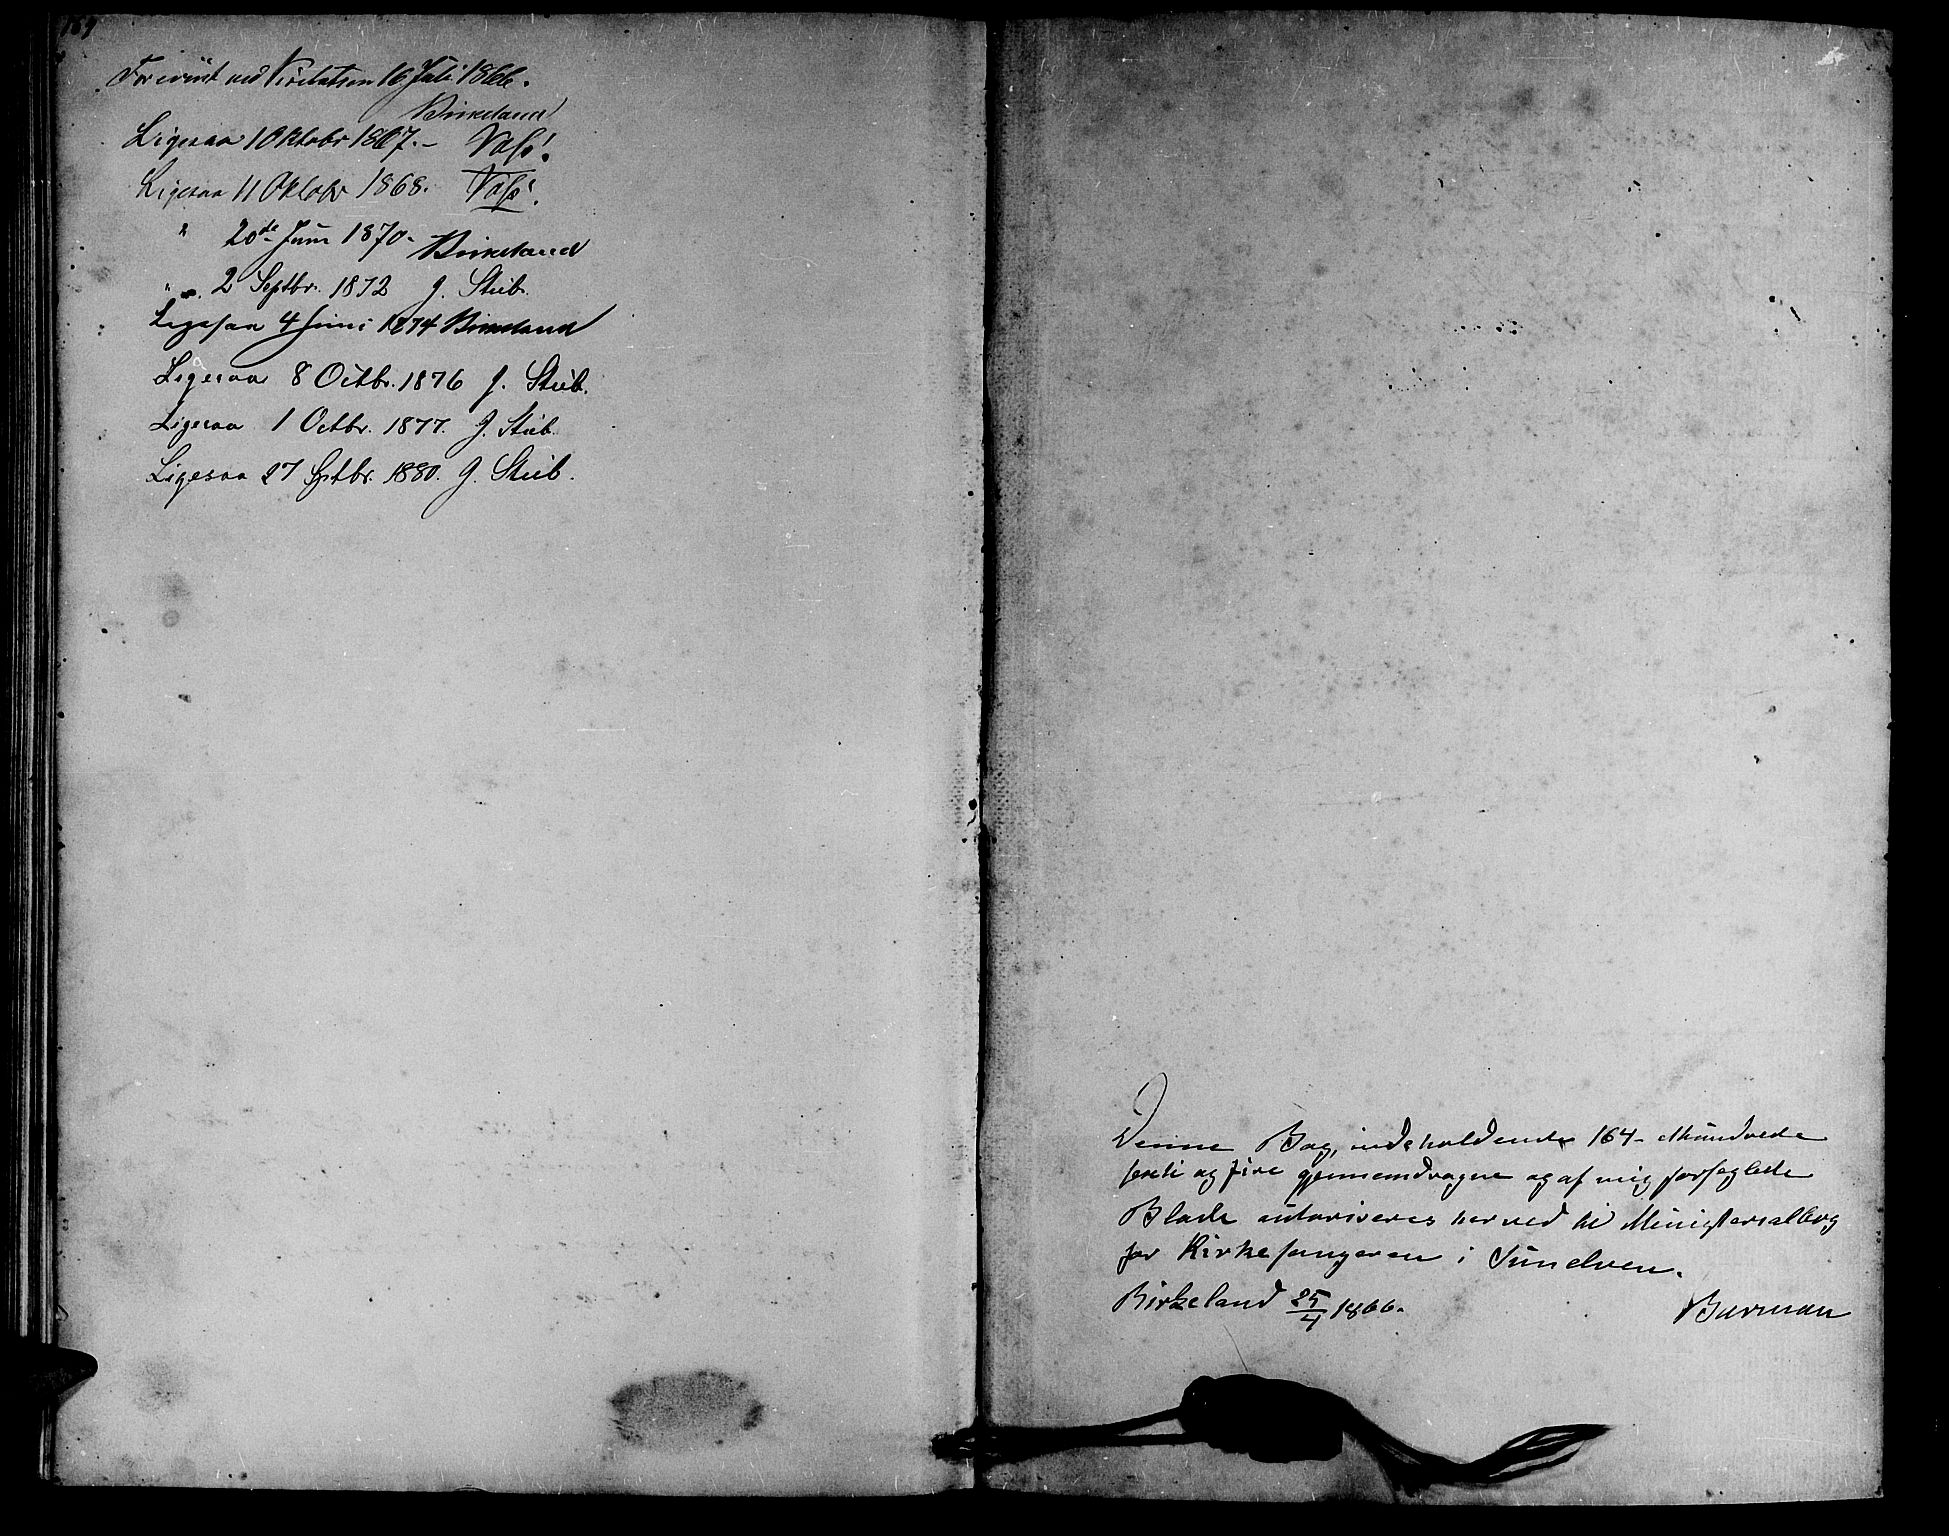 Forevist ved Visitatsen 16 Juli 1866.
Birkeland
Ligesaa 1 Oktobr 1867.-
Ligesaa 11 Oktobr 1868.
" 20de Juni 1870. Birkeland
" 2 Septbr. 1872 J. Steib.
Ligesaa 4 Juni 1874 Birkeland
Ligesaa 8 Octbr. 1876 J. Steib.
Ligesaa 1 Octbr. 1877. J. Steib.
Ligesaa 27 Sptbr. 1880. J. Steib.
Denne Bog, indeholdende 164 - Ethundrede
sexti og fire gjennemdragne og af mig forseglede
Blade autoriseres herved til Ministerialbog
for Kirkesangeren i Sundven.
Birkeland 25/4 1866.
Barman